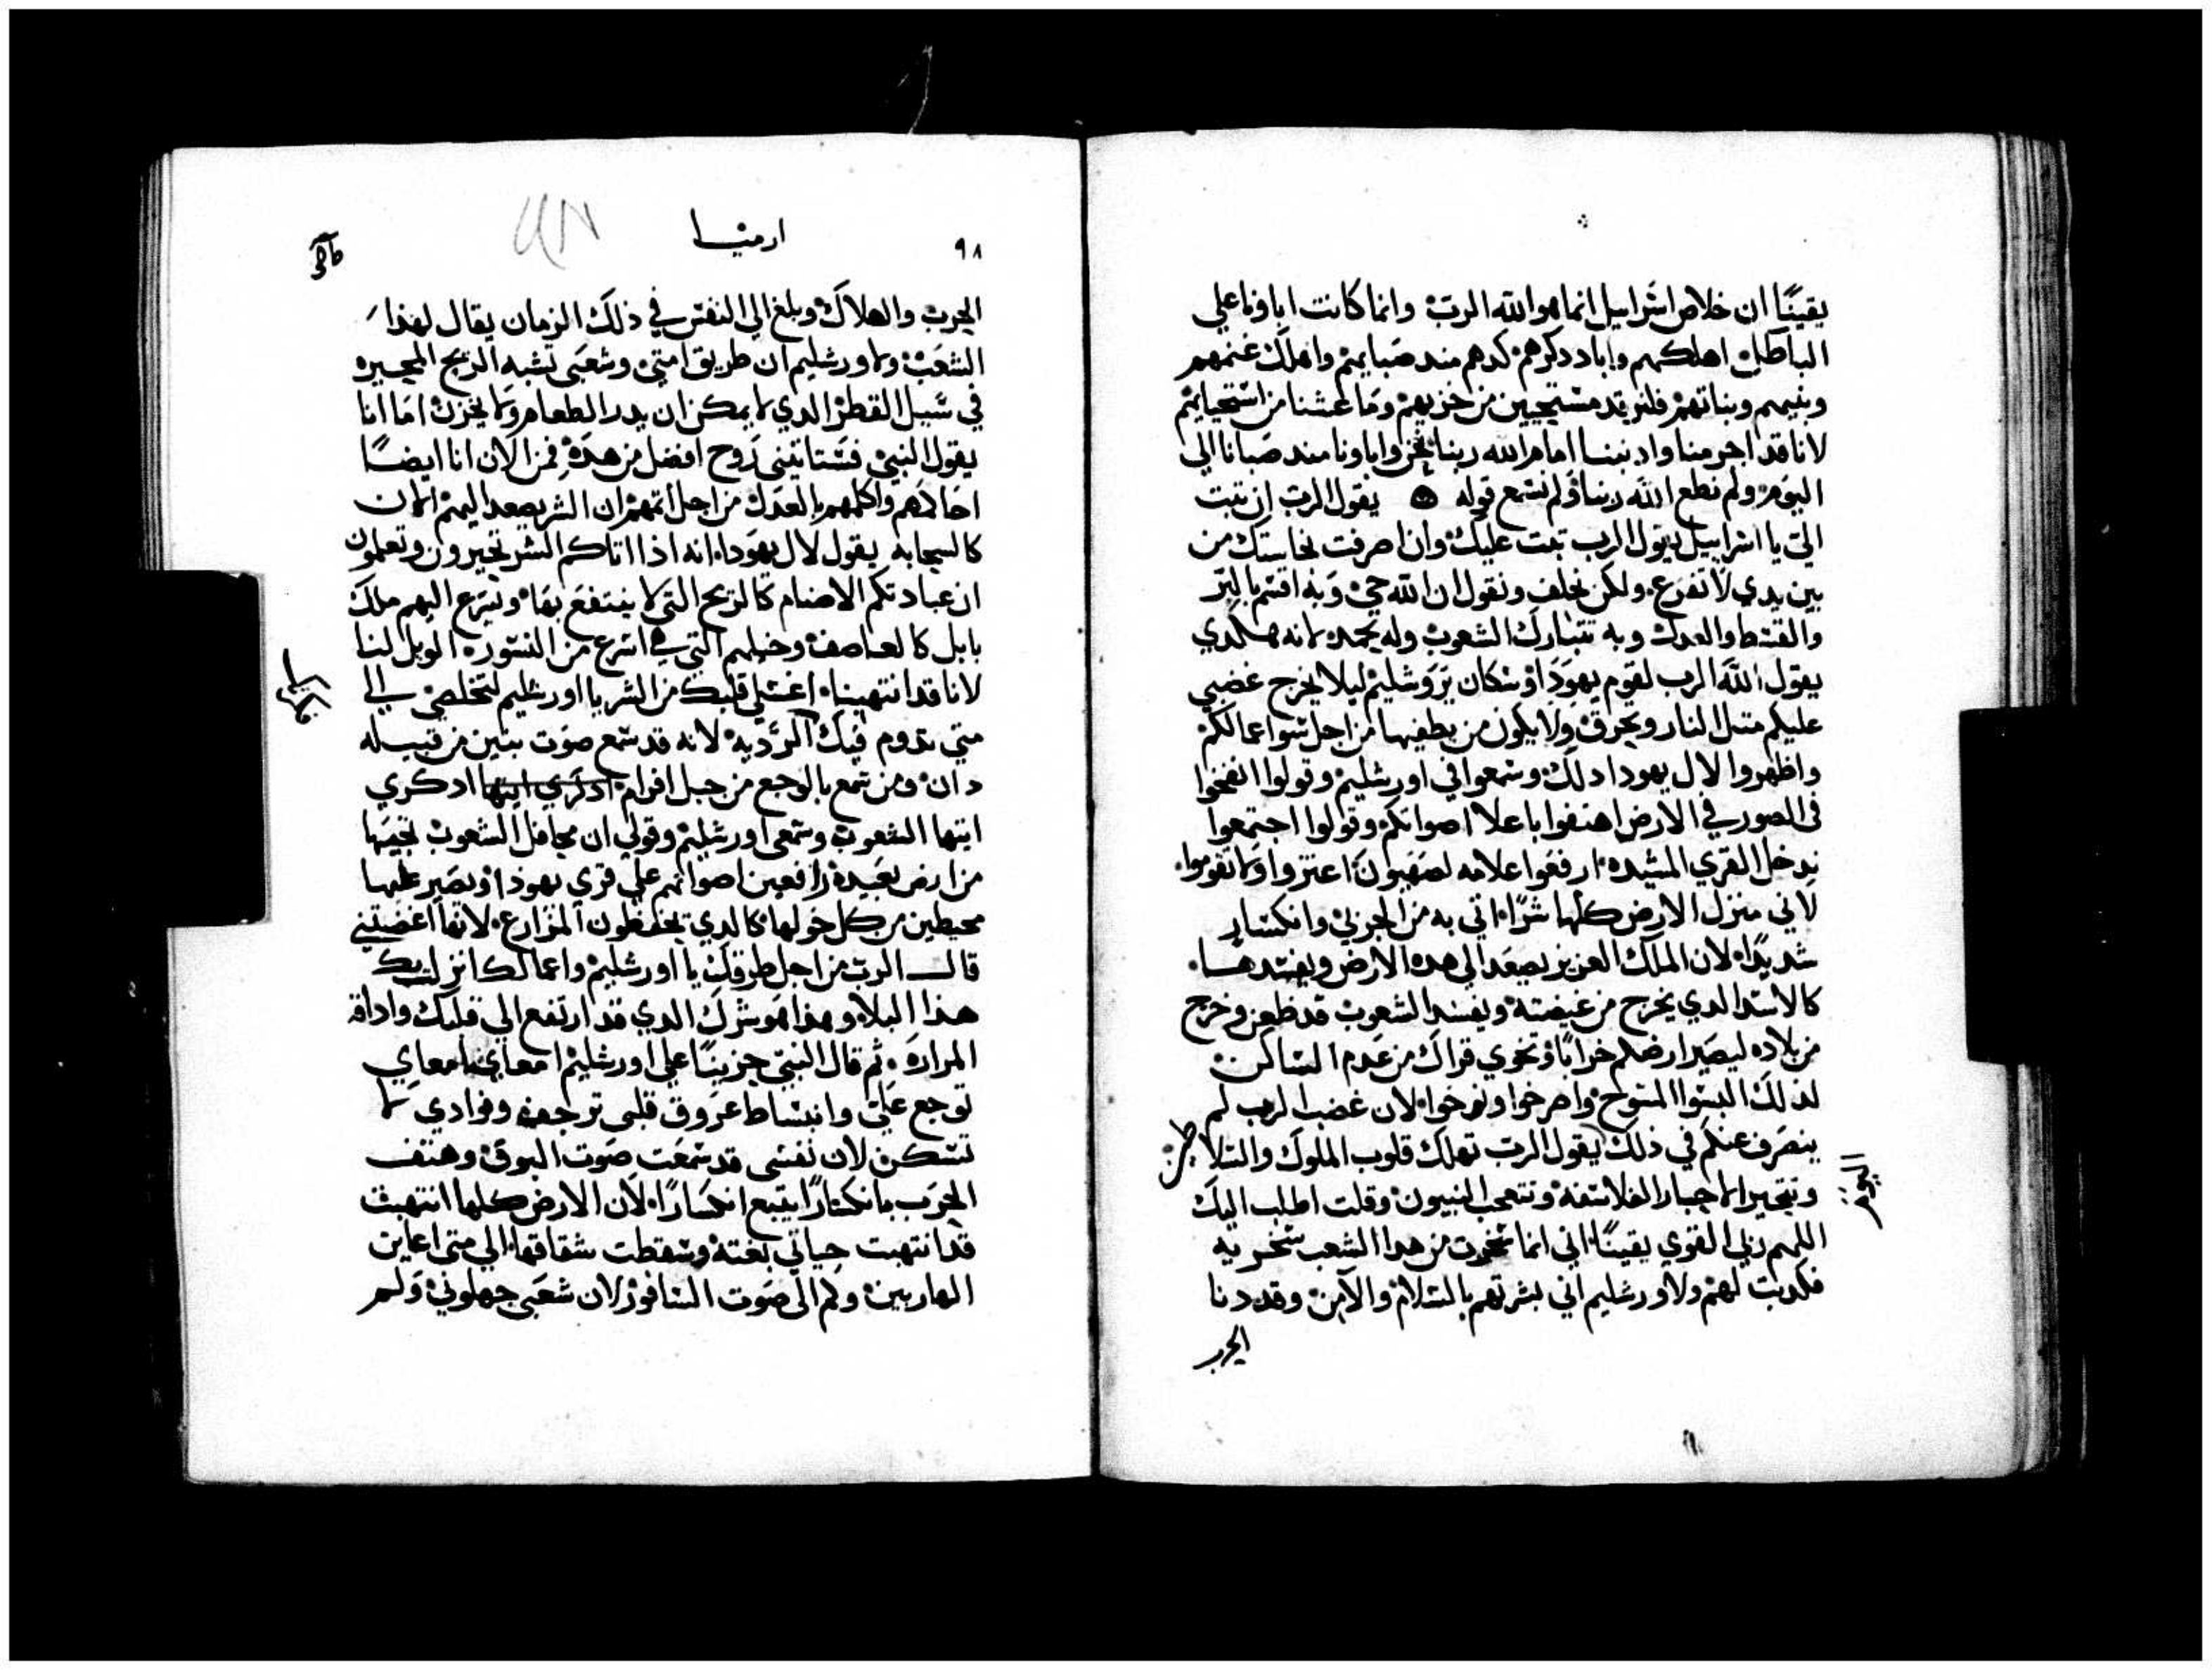 يقينًا ان خلاص اسرايل انما هو الله الرب وانما كانت اباونا علي
الباطل اهلكهم واباد دكرهم كدهم مند صبايهم واهلك غنمهم
وبنيهم وبناتهم فلنرقد مستحيين من خزيهم وما غشنا من استحيايهم
لانا قد اجرمنا وادنبنا امام الله ربنا نحن واباونا مند صبانا الي
اليوم ولم نطع الله ربنا ولم نسمع قوله يقول الرب ان تبت
الي يا اسراييل يقول الرب تبت عليك وان صرفت نجاستك من
بين يدي لا تفزع ولكن تحلف وتقول ان الله حي وبه اقسم بالبر
والقسط والعدل وبه تتبارك الشعوب وله يحمد لانه هكدي
يقول الله الرب لقوم يهودا وسكان يروشليم ليلا يخرج غضبي
عليكم متل النار ويحرق ولا يكون من يطفيها من اجل سوا اعمالكم
واظهروا لال يهودا دلك وسمعوا في اورشليم وقولوا انفخوا
في الصور في الارض اهتفوا باعلا اصواتكم وقولوا اجتمعوا
ندخل القري المشيده ارفعوا علامه لصهيون اعتزوا ولا تقوموا
لاني منزل الارض كلها شرًا اتي به من الجربي وانكسار
شديدًا لان الملك العزيز يصعد الي هده الارض ويفسدها
كالاسد الدي يخرج من غيضته ويفسد الشعوب قد ظعن وخرج
من بلاده ليصير ارضكم خرابًا وتخوي قراك من عدم الساكن
لدلك البسوا المسوح واصرخوا ونوحوا لان غضب الرب لم
ينصرف عنكم في ذلك يقول الرب تهلك قلوب الملوك والسلاطين
اليوم
وتتحير الاحبار الفلاسفه وتتعجب النبيون وقلت اطلب اليك
اللهم ربي القوي يقينًا اني انما سخرت من هدا الشعب سخريه
فكدبت لهم ولاورشليم اني بشرتهم بالسلام والامن وقد دنا
الحرب
٩٨
ارميا
الحرب والهلاك وبلغ الي النفس في ذلك الزمان يقال لهذا
الشعب ولاورشليم ان طريق امتي وشعبي تشبه الريح المحيره
في سبيل القطر الدي لا يمكن ان يدر الطعام ولا يخزن اما انا
يقول النبي فستاتيني روح افضل من هده فمن الان انا ايضًا
احاكمهم واكلمهم بالعدل من اجل اتمهم ان الشر يصعد اليهم الان
كالسحابه يقول لال يهودا انه اذا اتاكم الشر تخيرون وتعلمون
ان عبادتكم الاصنام كالريح التي لا ينتفع بها وتسرع اليهم ملك
بابل كالعاصف وخيلهم التي هي اسرع من النسوره الويل لنا
لانا قد انتهينا اغسلي قلبك من الشر يا اورشليم لتخلصي الي
متي تدوم فيك الرديه لانه قد سمع صوت بنين من قبيله
دان ومن سمع بالوجع من جبل افرام ادكري ايتها ادكري
ايتها الشعوب وسمعي اورشليم وقولي ان محافل الشعوب تجيها
من ارض بعيدة رافعين اصواتهم علي قري يهودا وتصير عليها
محيطين من كل حولها كالدي يحفظون المزارع لانها اغضبتني
قال الرب من اجل طرقك يا اورشليم واعمالك انزلت بك
هدا البلا وهدا هو شرك الدي قد ارتفع الي قلبك واداقه
المرارة ثم قال النبي حزينًا علي اورشليم امعاي امعاي
توجع علي وانبساط عروق قلبي ترجفه وفوادي لا
تسكن لان نفسي قد سمعت صوت البوق وهتف
الحرب بانكسارًا يتبع انكسارًا لان الارض كلها انتهبت
قد انتهبت حياتي بغتة وسقطت شقاقها الي متي اعاين
الهاربين وكم الي صوت السافور لان شعبي جهلوني ولم